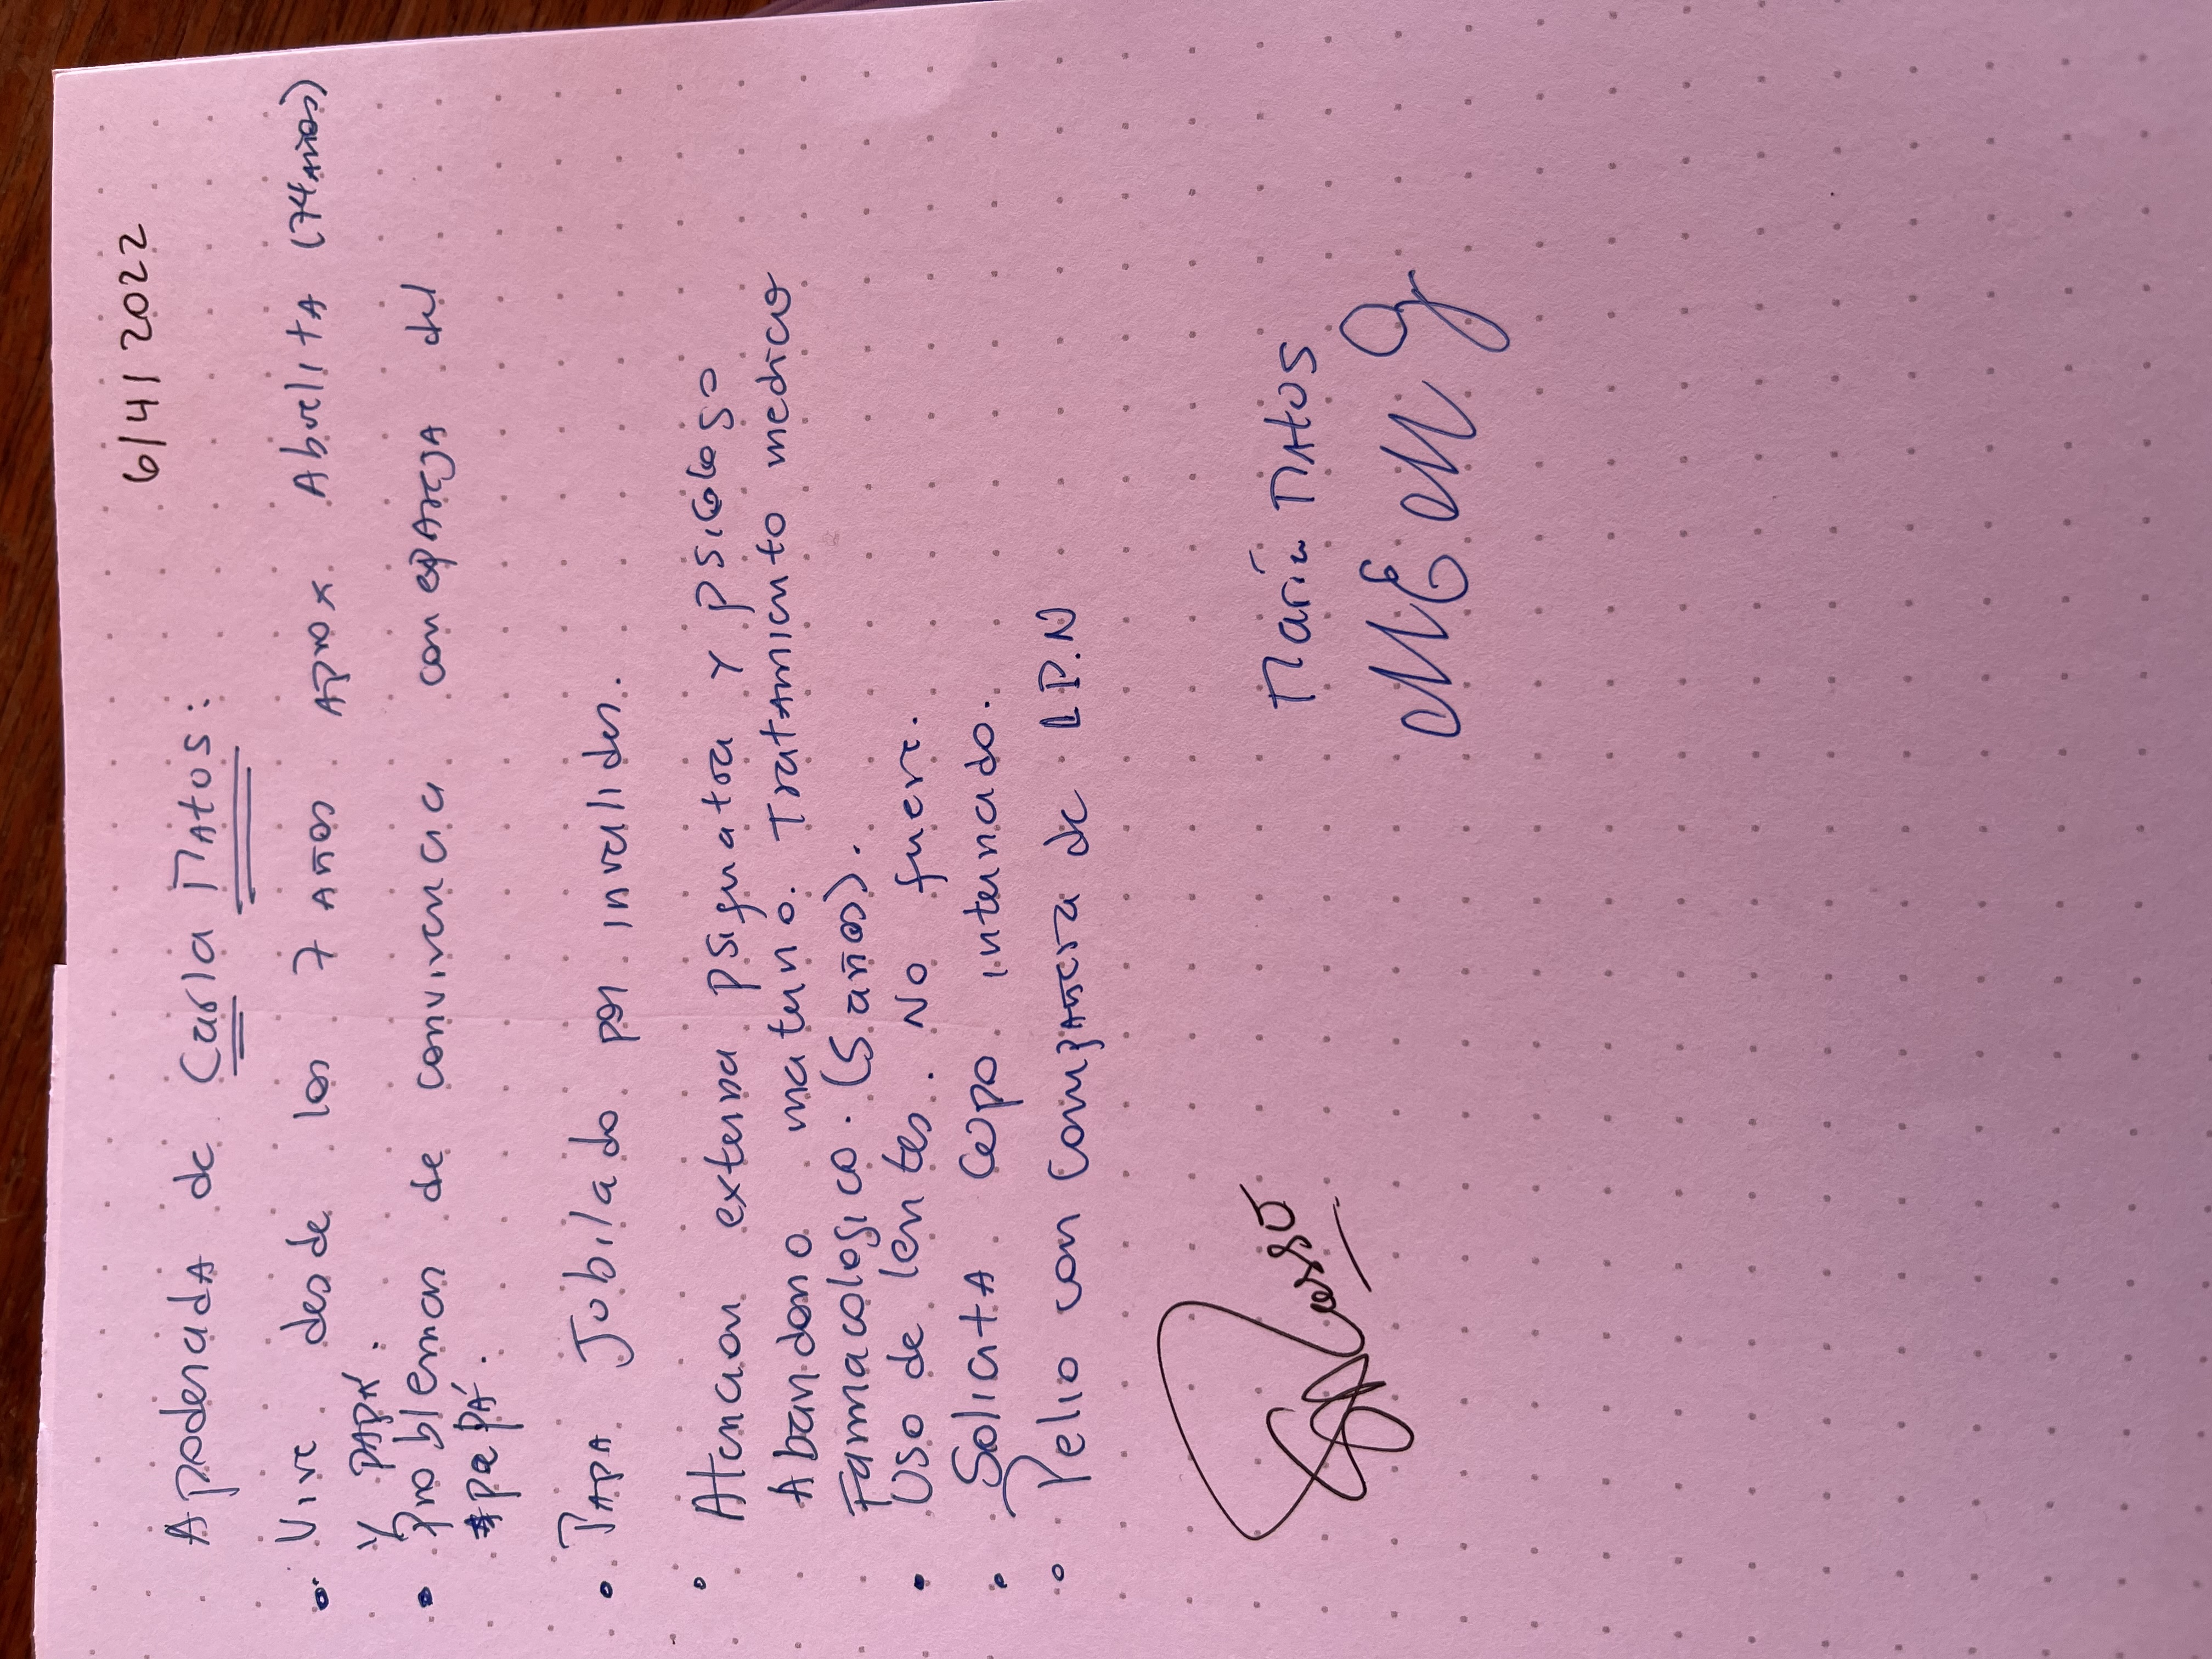 6/4/2022
Apoderada de Carla Matos:
• Vive desde los 7 años aprox Abuelita (74 años)
y papá.
• problemas de convivencia con pareja del
papá.
• Papa Jubilado por invalidez.
• Atencion externa psiquiatra y psicologo
Abandono materno. Tratamiento medico
Farmacologico. (5 años).
• Uso de lentes. No fuere.
• Solicita Cupo internado.
• Pelio con compañera de LPN
María Matos